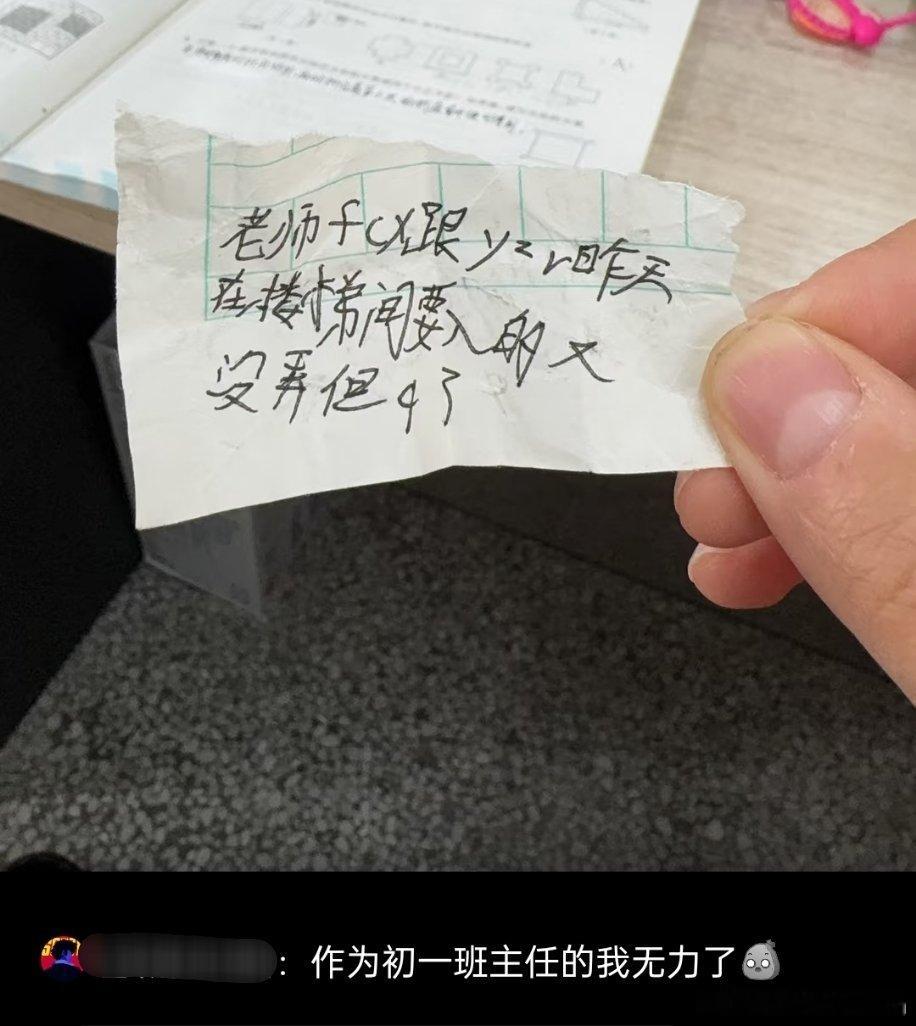 老师fcx跟yzr昨天
在楼梯间要人的又
没弄但q了
：作为初一班主任的我无力了